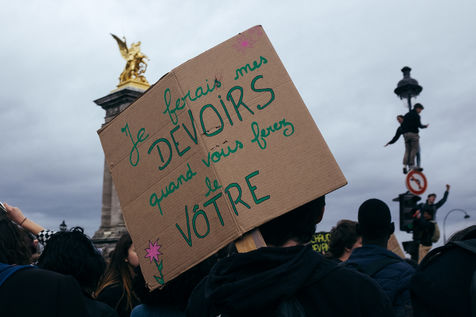 Je ferais mes
DEVOIRS
quand voùs ferez
le
VÔTRE